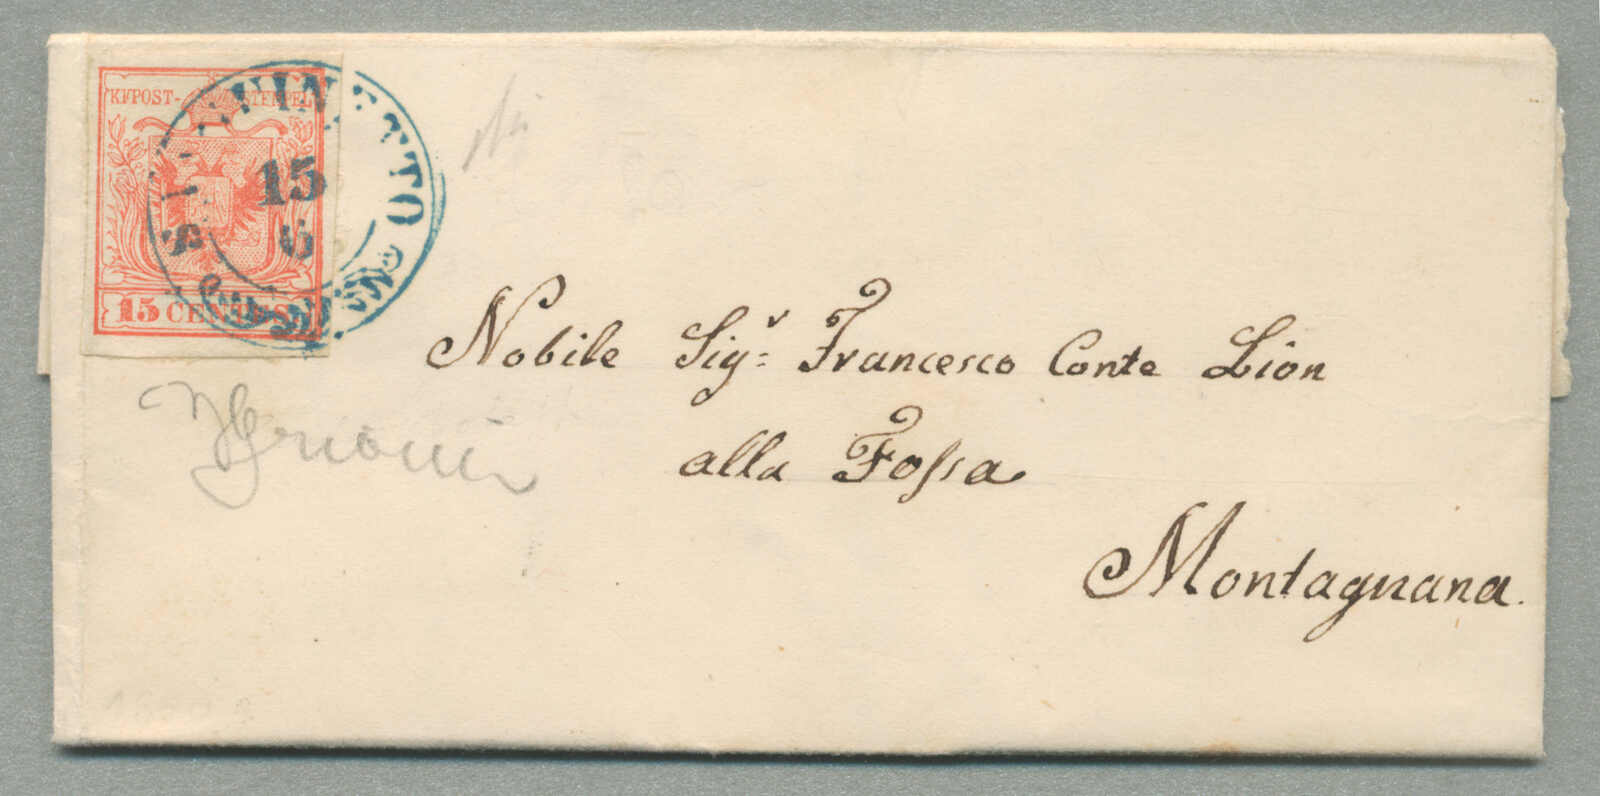 KK POST-STEMPEL
15 CENTES
15
6
Nobile Sigr. Francesco Conte Lion
alla Fossa
Montagnana.